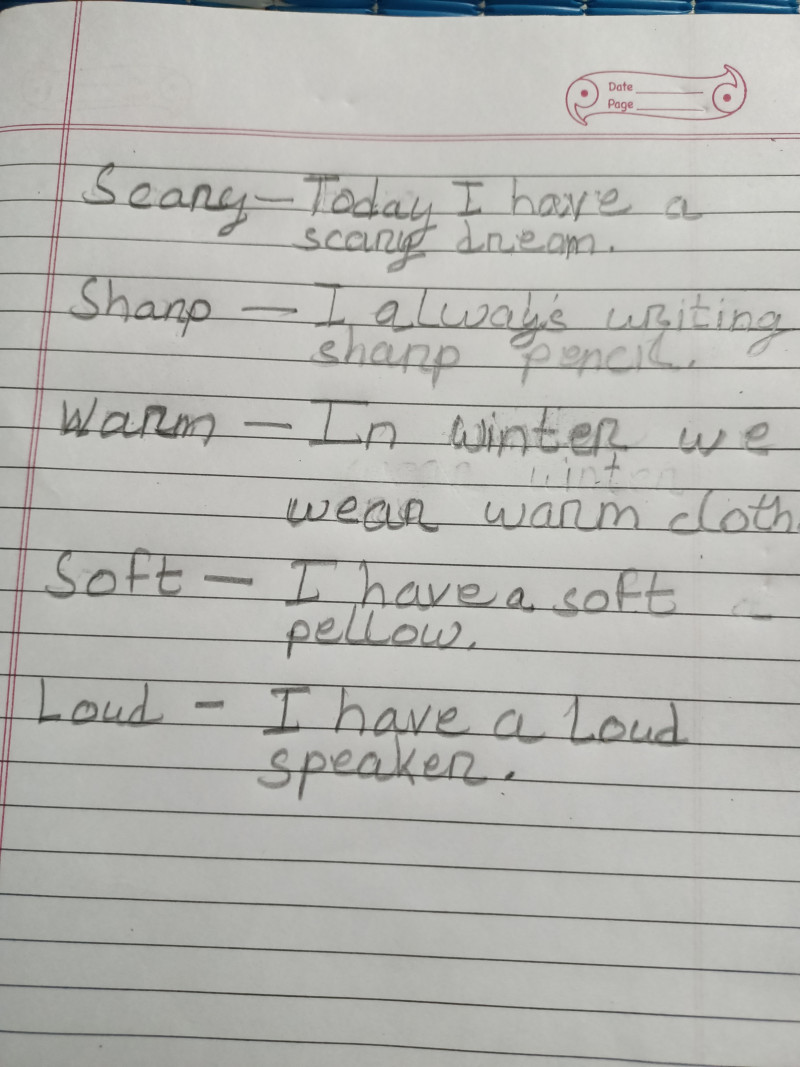 Date
Page
Scary – Today I have a
scary dream.
Sharp – I always writing
sharp pencil.
Warm – In winter we
wear warm cloth.
Soft – I have a soft
pellow.
Loud – I have a Loud
speaker.